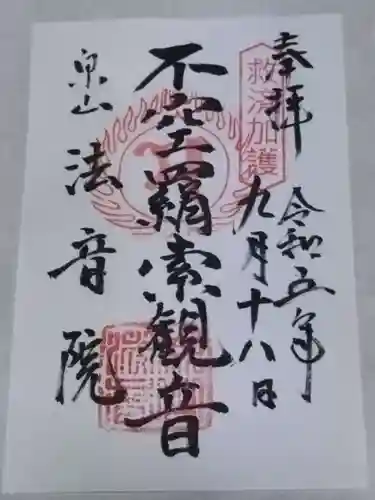 奉拝
令和五年
九月十八日
救済加護
不空羂索観音
泉山
法音院